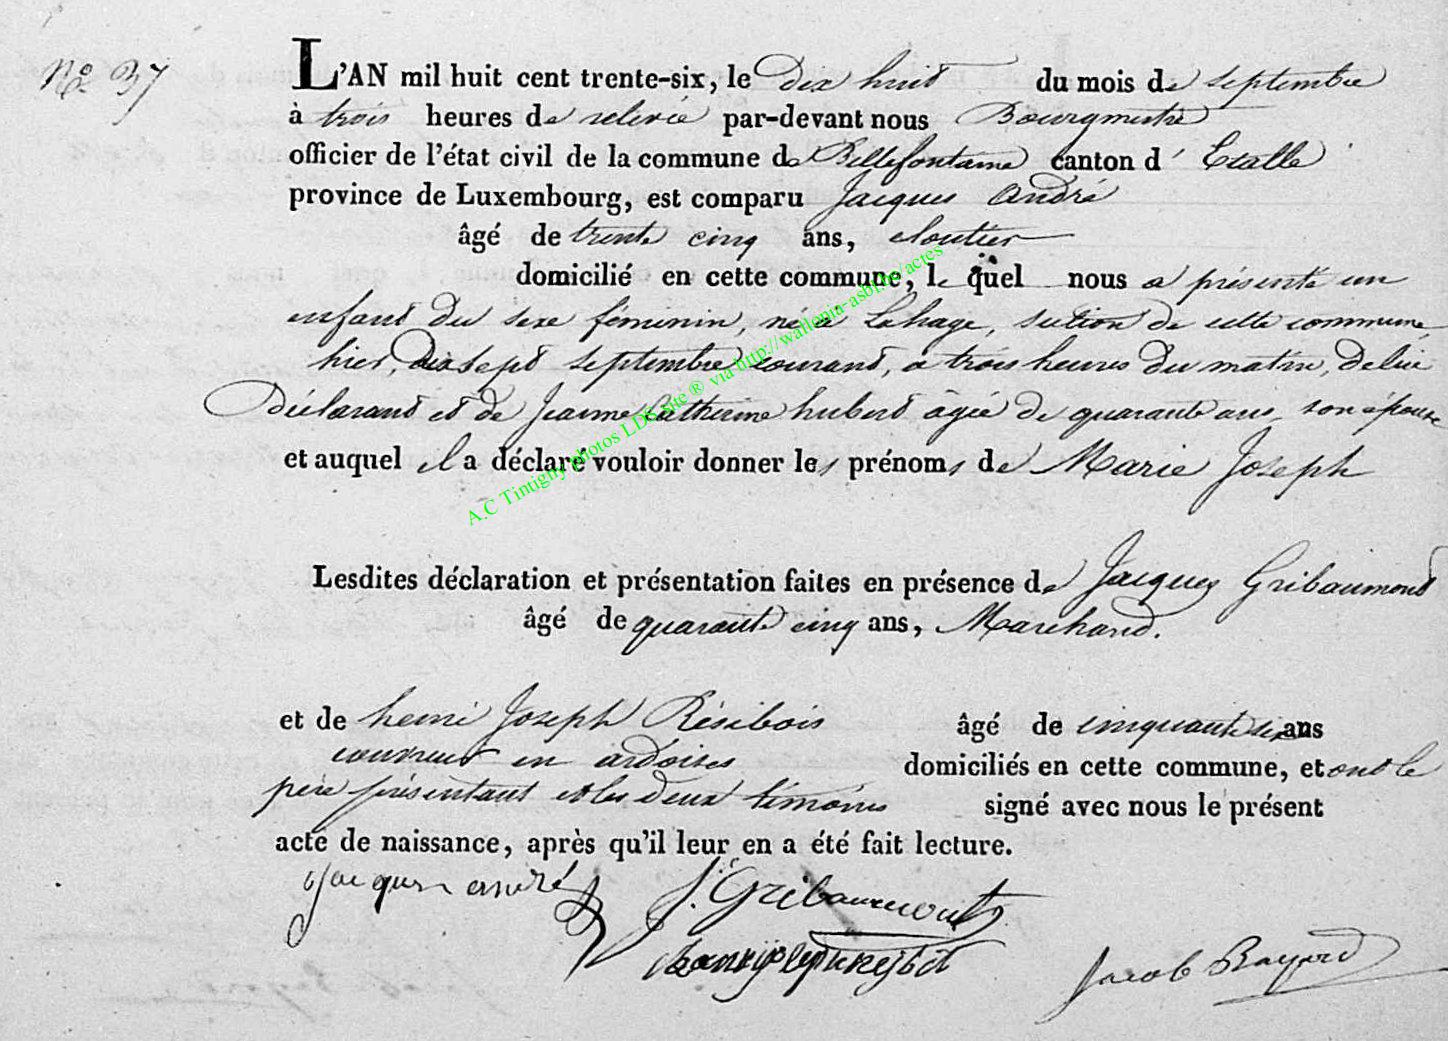 No 37
L'AN mil huit cent trente-six, le dix huit du mois de septembre
à trois heures de relevée par-devant nous Bourgmestre
officier de l'état civil de la commune de Bellefontaine canton d' Etalle
province de Luxembourg, est comparu Jacques André
âgé de trente cinq ans, cloutier
domicilié en cette commune, le quel nous a présenté un
enfant du sexe féminin, né à Lahage, section de cette commune
hier, dix sept septembre courant, à trois heures du matin, de lui
Déclarant et de Jeanne Catherine hubert âgée de quarante ans, son épouse
et auquel il a déclaré vouloir donner les prénoms de Marie Joseph
Lesdites déclaration et présentation faites en présence de Jacques Gribaumont
âgé de quarante cinq ans, Marchand.
et de henri Joseph Résibois âgé de cinquante six ans
couvreur en ardoises domiciliés en cette commune, et ont le
père présentant et les deux témoins signé avec nous le présent
acte de naissance, après qu'il leur en a été fait lecture.
jacques andré J. Gribaumont
Jacob Bayard
A.C Tintigny photos LDS site ® via http://wallonia-asbl.be/actes